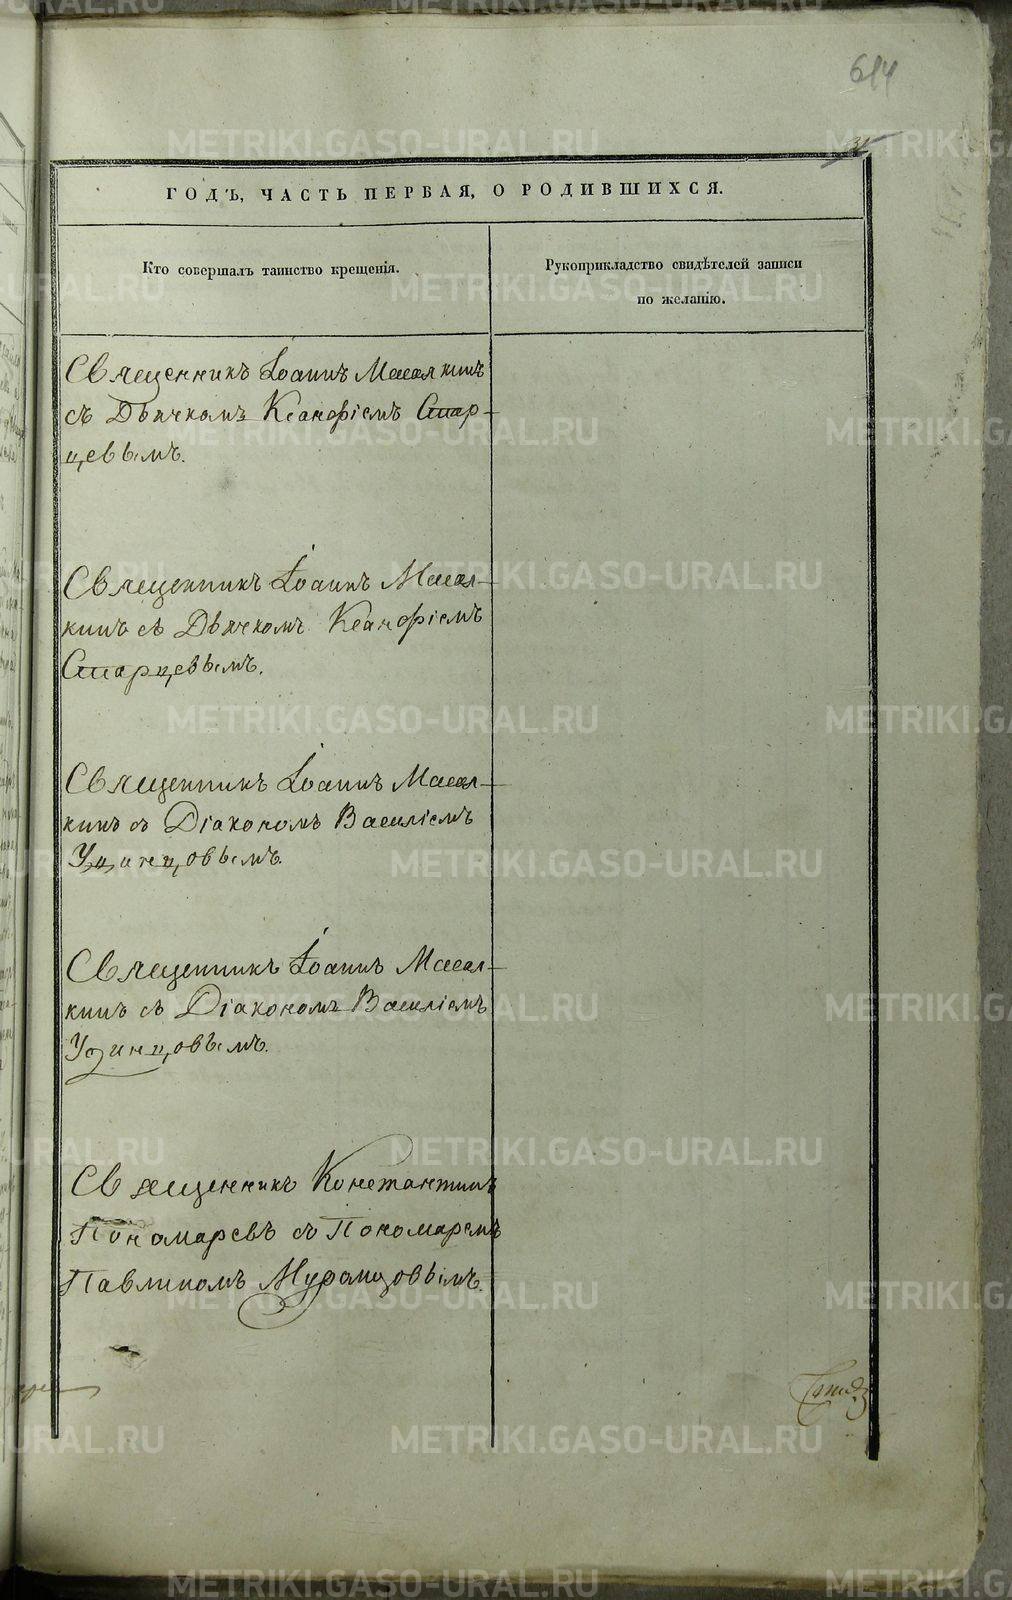 614
ГОДЪ, ЧАСТЬ ПЕРВАЯ, О РОДИВШИХСЯ.
Кто совершалъ таинство крещенія.
Рукоприкладство свидѣтелей записи
по желанію.
Священникъ Іоаннъ Масалкинъ
съ Дьячкомъ Ксанфіемъ Стар-
цевымъ.
Священникъ Іоаннъ Масал-
кинъ съ Дьячкомъ Ксанфіемъ
Старцевымъ.
Священникъ Іоаннъ Масал-
кинъ съ Діакономъ Василіемъ
Удинцовымъ
Священникъ Іоаннъ Масал-
кинъ съ Діакономъ Василіемъ
Удинцовымъ.
Священникъ Константинъ
Пономаревъ съ Пономаремъ
Павлиномъ Мурамцовымъ.
METRIKI.GASO-URAL.RU